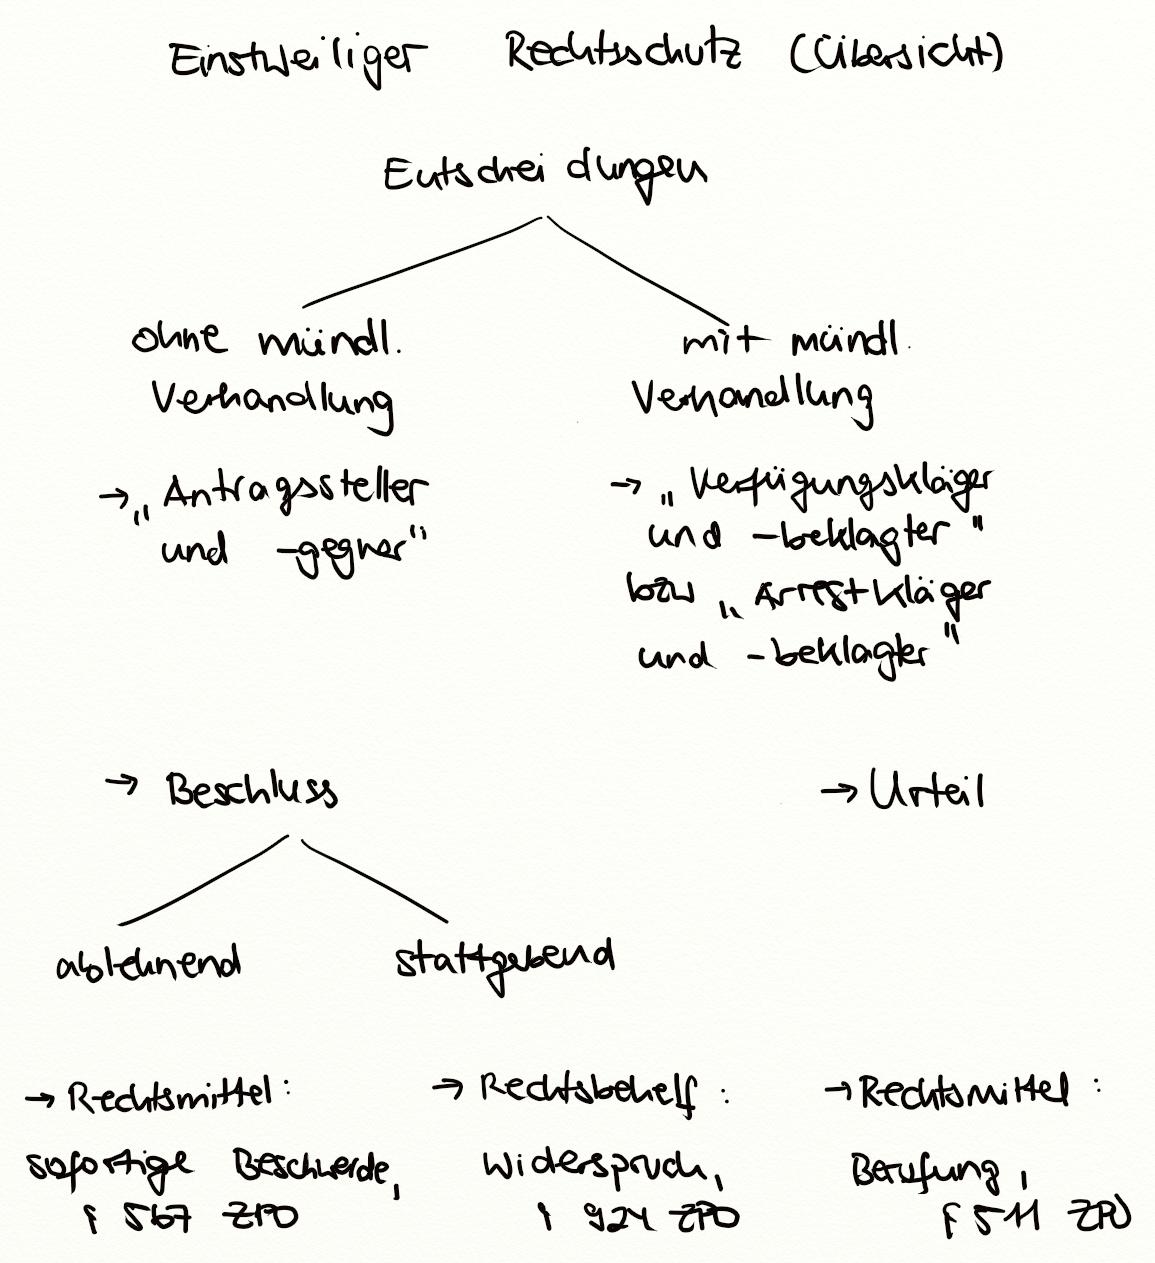 Einstweiliger Rechtsschutz (Übersicht)
Entscheidungen
ohne mündl.
Verhandlung
→ „Antragssteller
und -gegner"
mit mündl.
Verhandlung
→ „Verfügungskläger
und -beklagter"
bzw „Arrestkläger
und -beklagter"
→ Beschluss
→ Urteil
ablehnend
stattgebend
→ Rechtsmittel:
sofortige Beschwerde,
§ 567 ZPO
→ Rechtsbehelf:
Widerspruch,
§ 924 ZPO
→ Rechtsmittel:
Berufung,
§ 511 ZPO